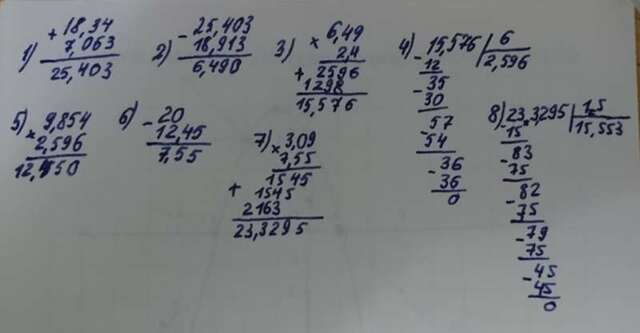 1) + 18,34
7,063
25,403
2) - 25,403
18,913
6,490
3) × 6,49
2,4
+ 2596
1298
15,576
4) - 15,576 | 6
12 | 2,596
- 35
30
57
- 54
- 36
36
0
5) × 9,854
2,596
6) - 20
12,45
7,55
7) × 3,09
7,55
1545
+ 1545
2163
23,3295
8) 23,3295 | 1,5
- 15 | 15,553
- 83
75
- 82
75
- 79
75
- 45
45
0